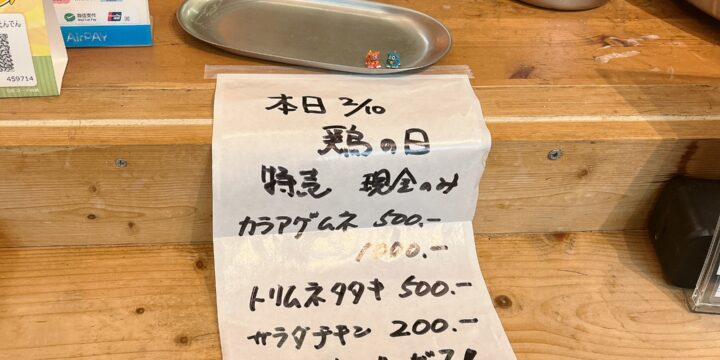 本日 2/10
鶏の日
特売 現金のみ
カラアゲムネ 500.-
1000.-
トリムネタタキ 500.-
サラダチキン 200.-
AirPAY
459714